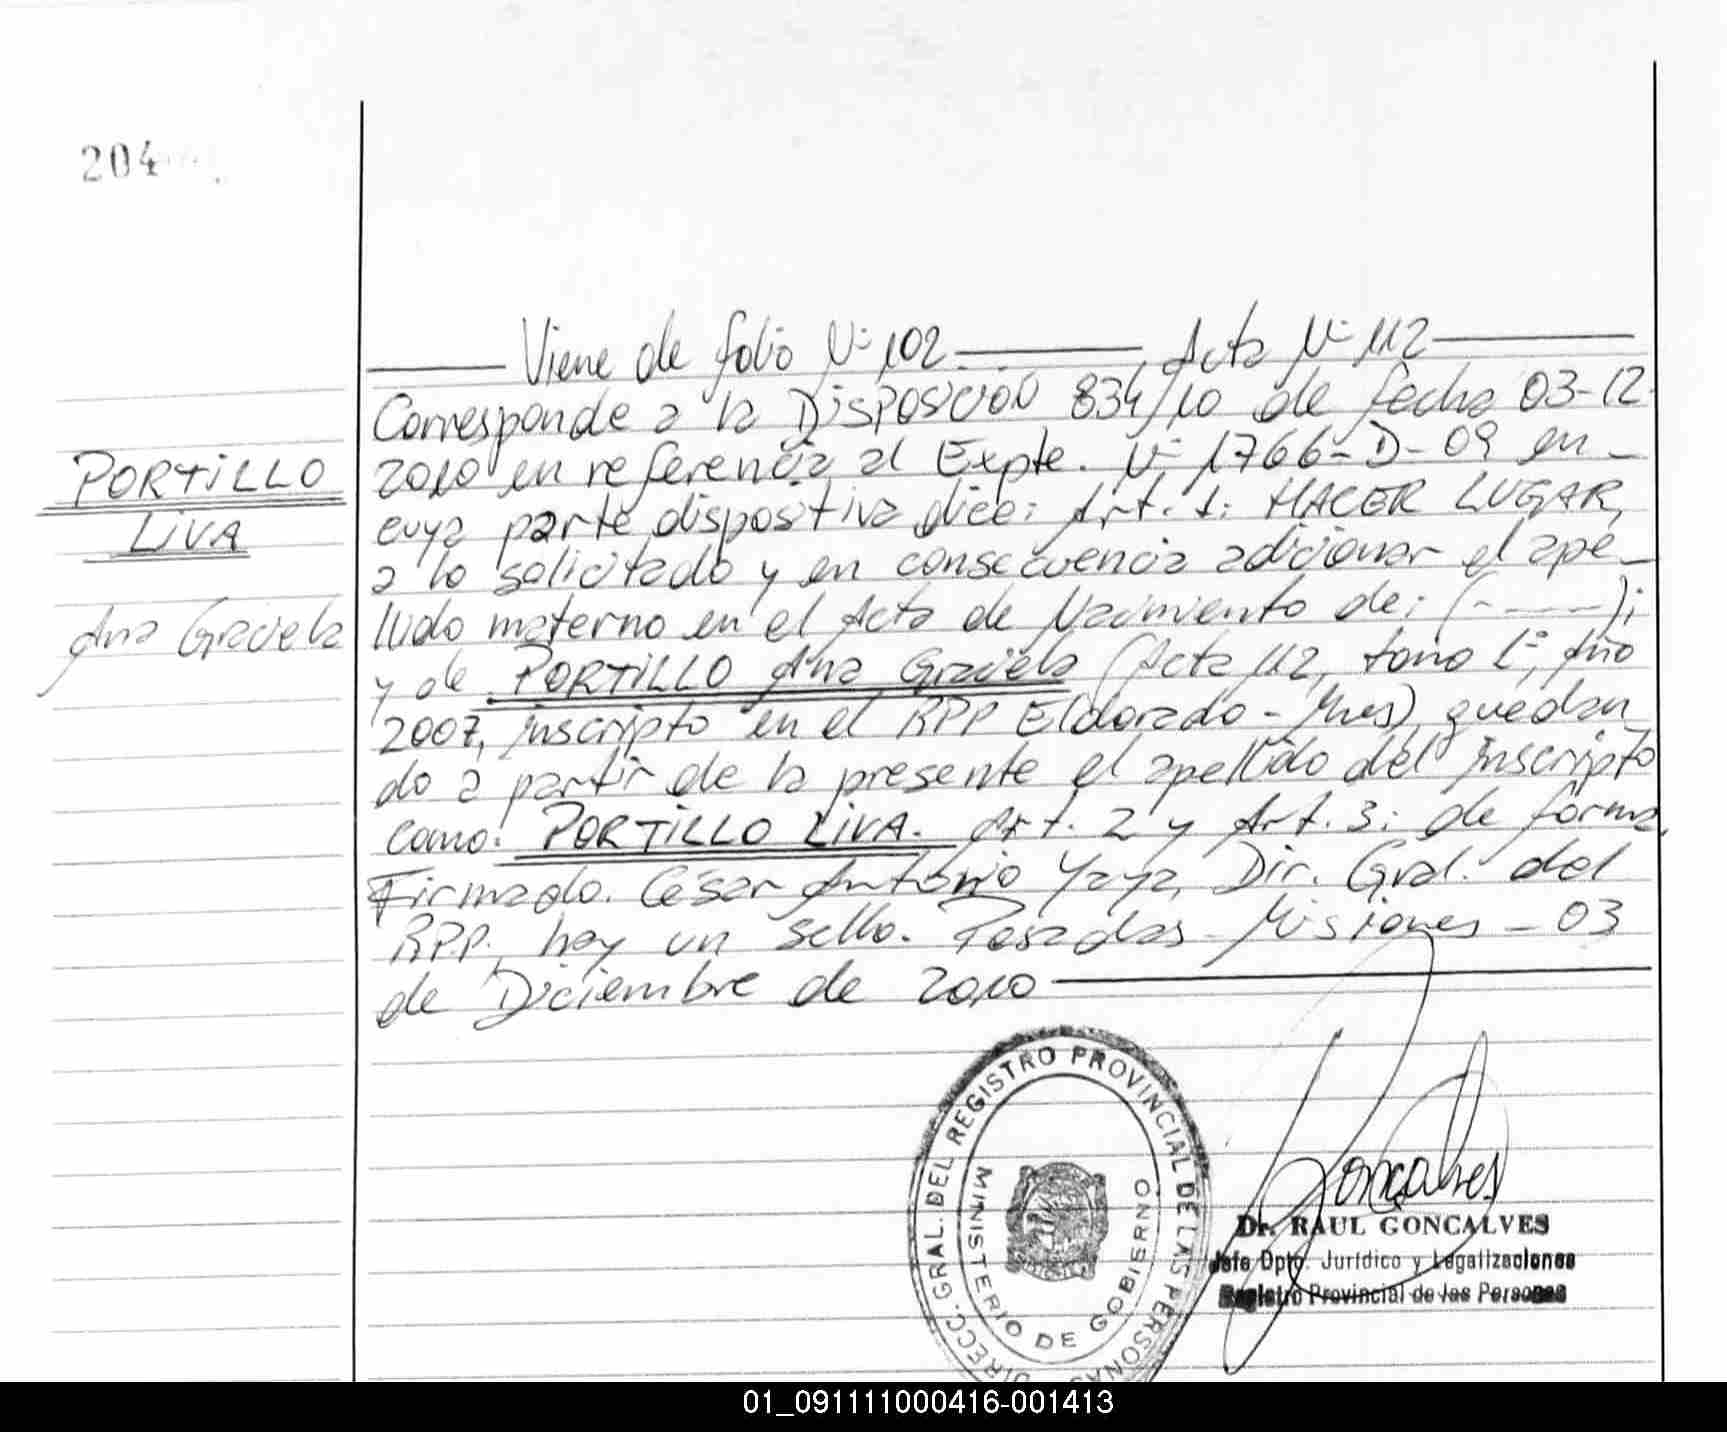 204
Viene de folio Nº 102 Acta Nº 112
Corresponde a la Disposición 834/10 de fecha 03-12-
2010 en referencia al Expte. Nº 1766-D-09 en
cuya parte dispositiva dice: Art. 1: HACER LUGAR,
a lo solicitado y en consecuencia adicionar el ape-
llido materno en el Acta de Nacimiento de: (- ----);
y de PORTILLO Ana Graciela (Acta 112, tomo 1º, Año
2007, inscripto en el RPP Eldorado - Mnes) quedan
do a partir de la presente el apellido del inscripto
como: PORTILLO LIVA. Art. 2 y Art. 3: de forma.
Firmado. César Antonio Yaya, Dir. Gral. del
RPP. hay un sello. Posadas - Misiones - 03
de Diciembre de 2010
PORTILLO
LIVA
Ana Graciela
DIRECC. GRAL. DEL REGISTRO PROVINCIAL DE LAS PERSONAS
MINISTERIO DE GOBIERNO
Goncalves
Dr. RAUL GONCALVES
Jefe Dpto. Jurídico y Legalizaciones
Registro Provincial de las Personas
01_091111000416-001413